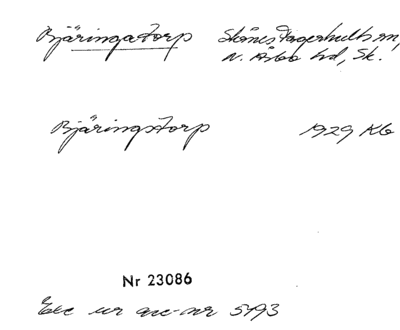 Bjäringatorp Skånes Fagerhults sn,
N. Åsbo hd, Sk.
Bjäringstorp 1929 Kb
Nr 23086
Exc ur acc-nr 5193